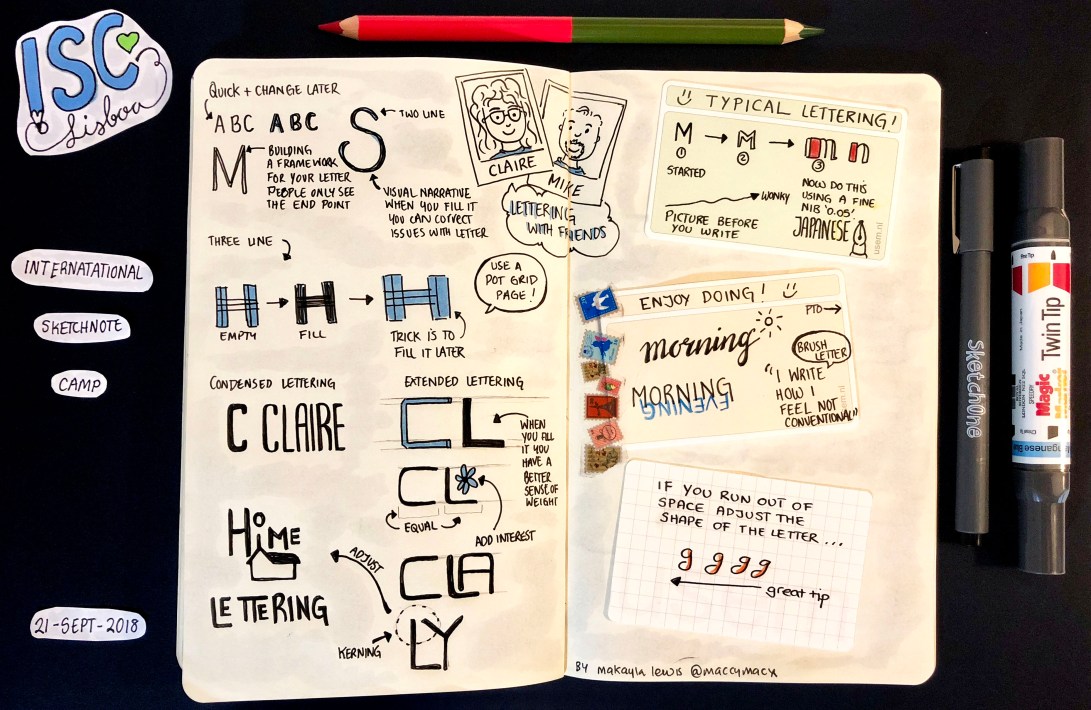 ISC
Lisboa
INTERNATATIONAL
SKETCHNOTE
CAMP
21-SEPT-2018
QUICK + CHANGE LATER
ABC ABC
S
TWO LINE
M
BUILDING
A FRAMEWORK
FOR YOUR LETTER
PEOPLE ONLY SEE
THE END POINT
VISUAL NARRATIVE
WHEN YOU FILL IT
YOU CAN CORRECT
ISSUES WITH LETTER
CLAIRE
MIKE
LETTERING
WITH FRIENDS
THREE LINE
H H H
EMPTY
FILL
TRICK IS TO
FILL IT LATER
USE A
DOT GRID
PAGE!
CONDENSED LETTERING
C CLAIRE
EXTENDED LETTERING
CL
WHEN
YOU FILL
IT YOU
HAVE A
BETTER
SENSE OF
WEIGHT
CL
EQUAL
ADD INTEREST
CLA
LY
ADJUST
KERNING
HOME
LETTERING
TYPICAL LETTERING!
M M M n
1 2 3
STARTED
WONKY
PICTURE BEFORE
YOU WRITE
NOW DO THIS
USING A FINE
NIB '0.05'
JAPANESE
usem.nl
ENJOY DOING!
PTO
morning
BRUSH
LETTER
MORNING
EVENING
"I WRITE
HOW I
FEEL NOT
CONVENTIONAL"
IF YOU RUN OUT OF
SPACE ADJUST THE
SHAPE OF THE LETTER...
g g g g
great tip
BY makayla lewis @maccymacx
SketchOne
Magic
Twin Tip